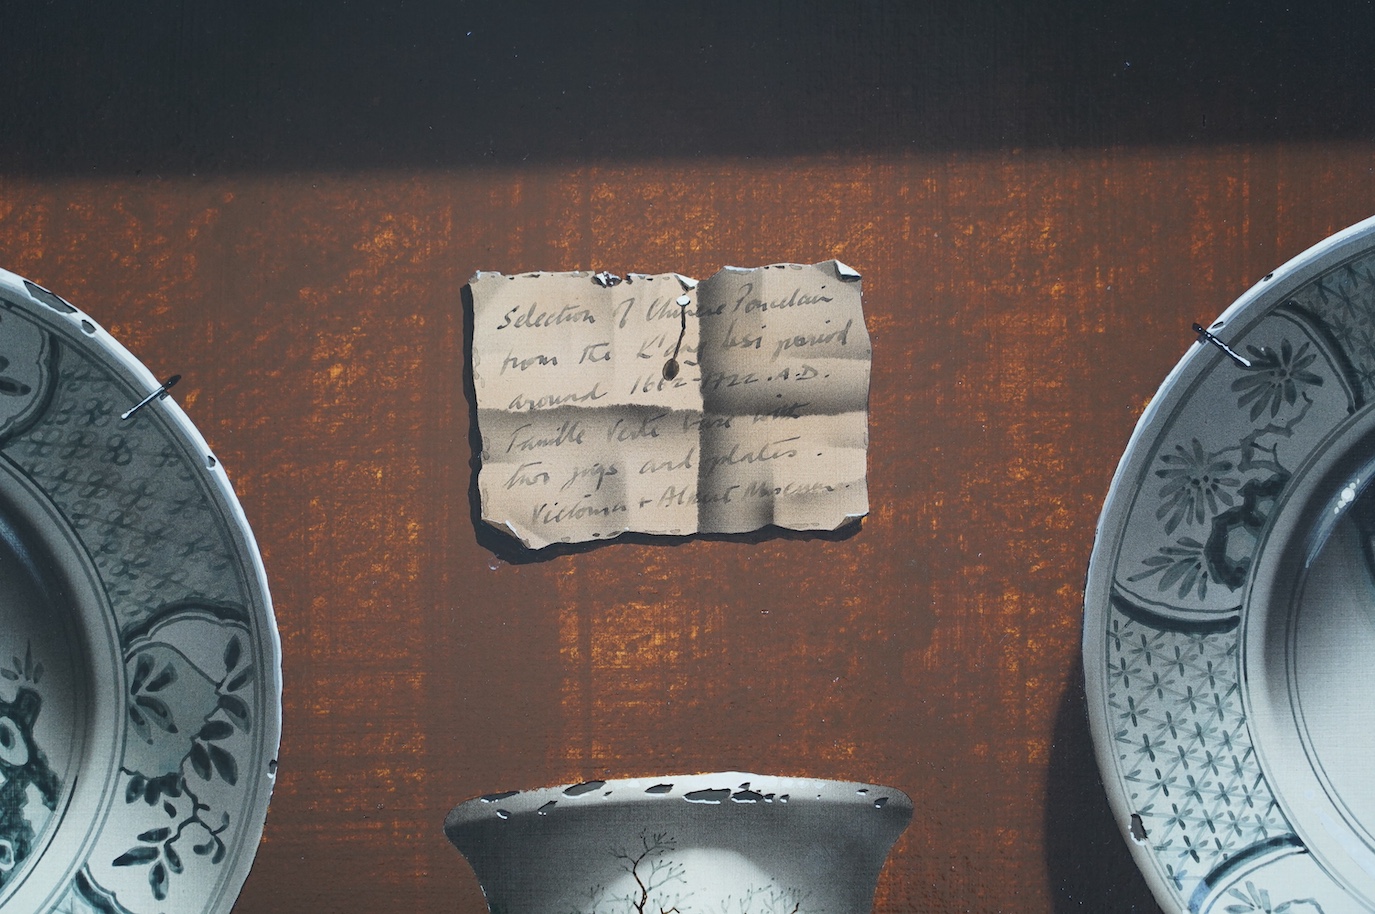 Selection of Chinese Porcelain
from the K'ang hsi period
around 1662-1722 . A.D.
Famille Verte vase with
two jugs and plates .
Victoria + Albert Museum .